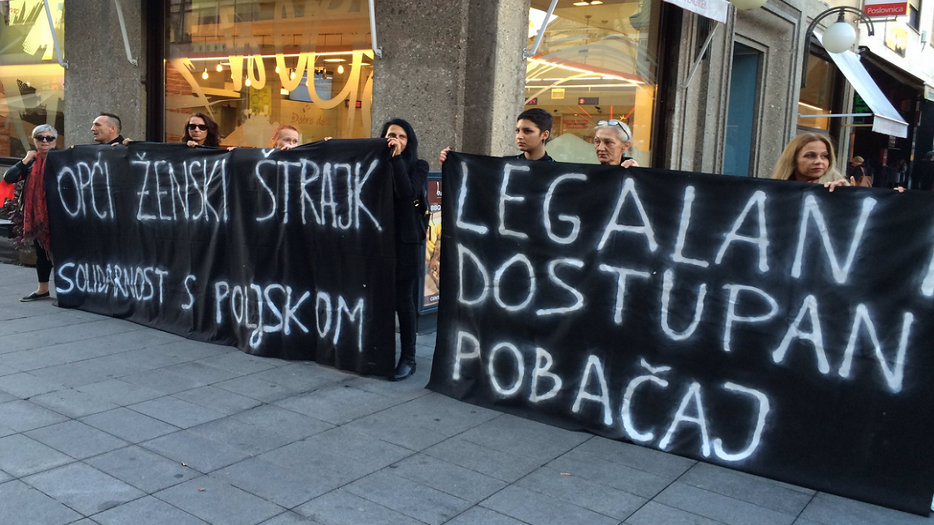 OPĆI ŽENSKI ŠTRAJK
SOLIDARNOST S POLJSKOM
LEGALAN I
DOSTUPAN
POBAČAJ
Poslovnica